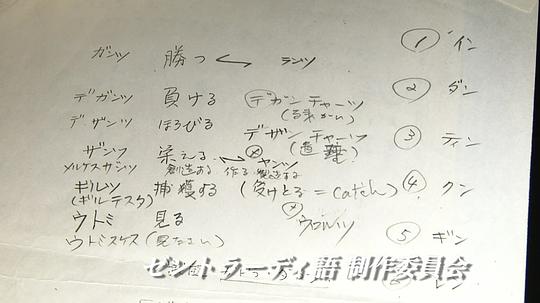 ガンツ 勝つ ランツ ① イン
デガンツ 負ける デカンチャーツ ② ダン
デザンツ ほろびる デザンチャーツ ③ ティン
ザンツ 栄える ヤンツ
メルケスザンツ 創造する 作る 製造する
ギルツ 捕獲する (受けとる = catch) ④ クン
(ギルテスタ)
ウトミ 見る ウロルツ
ウトミスケス (見なさい) ⑤ ギン
ゼントラーディ語 制作委員会